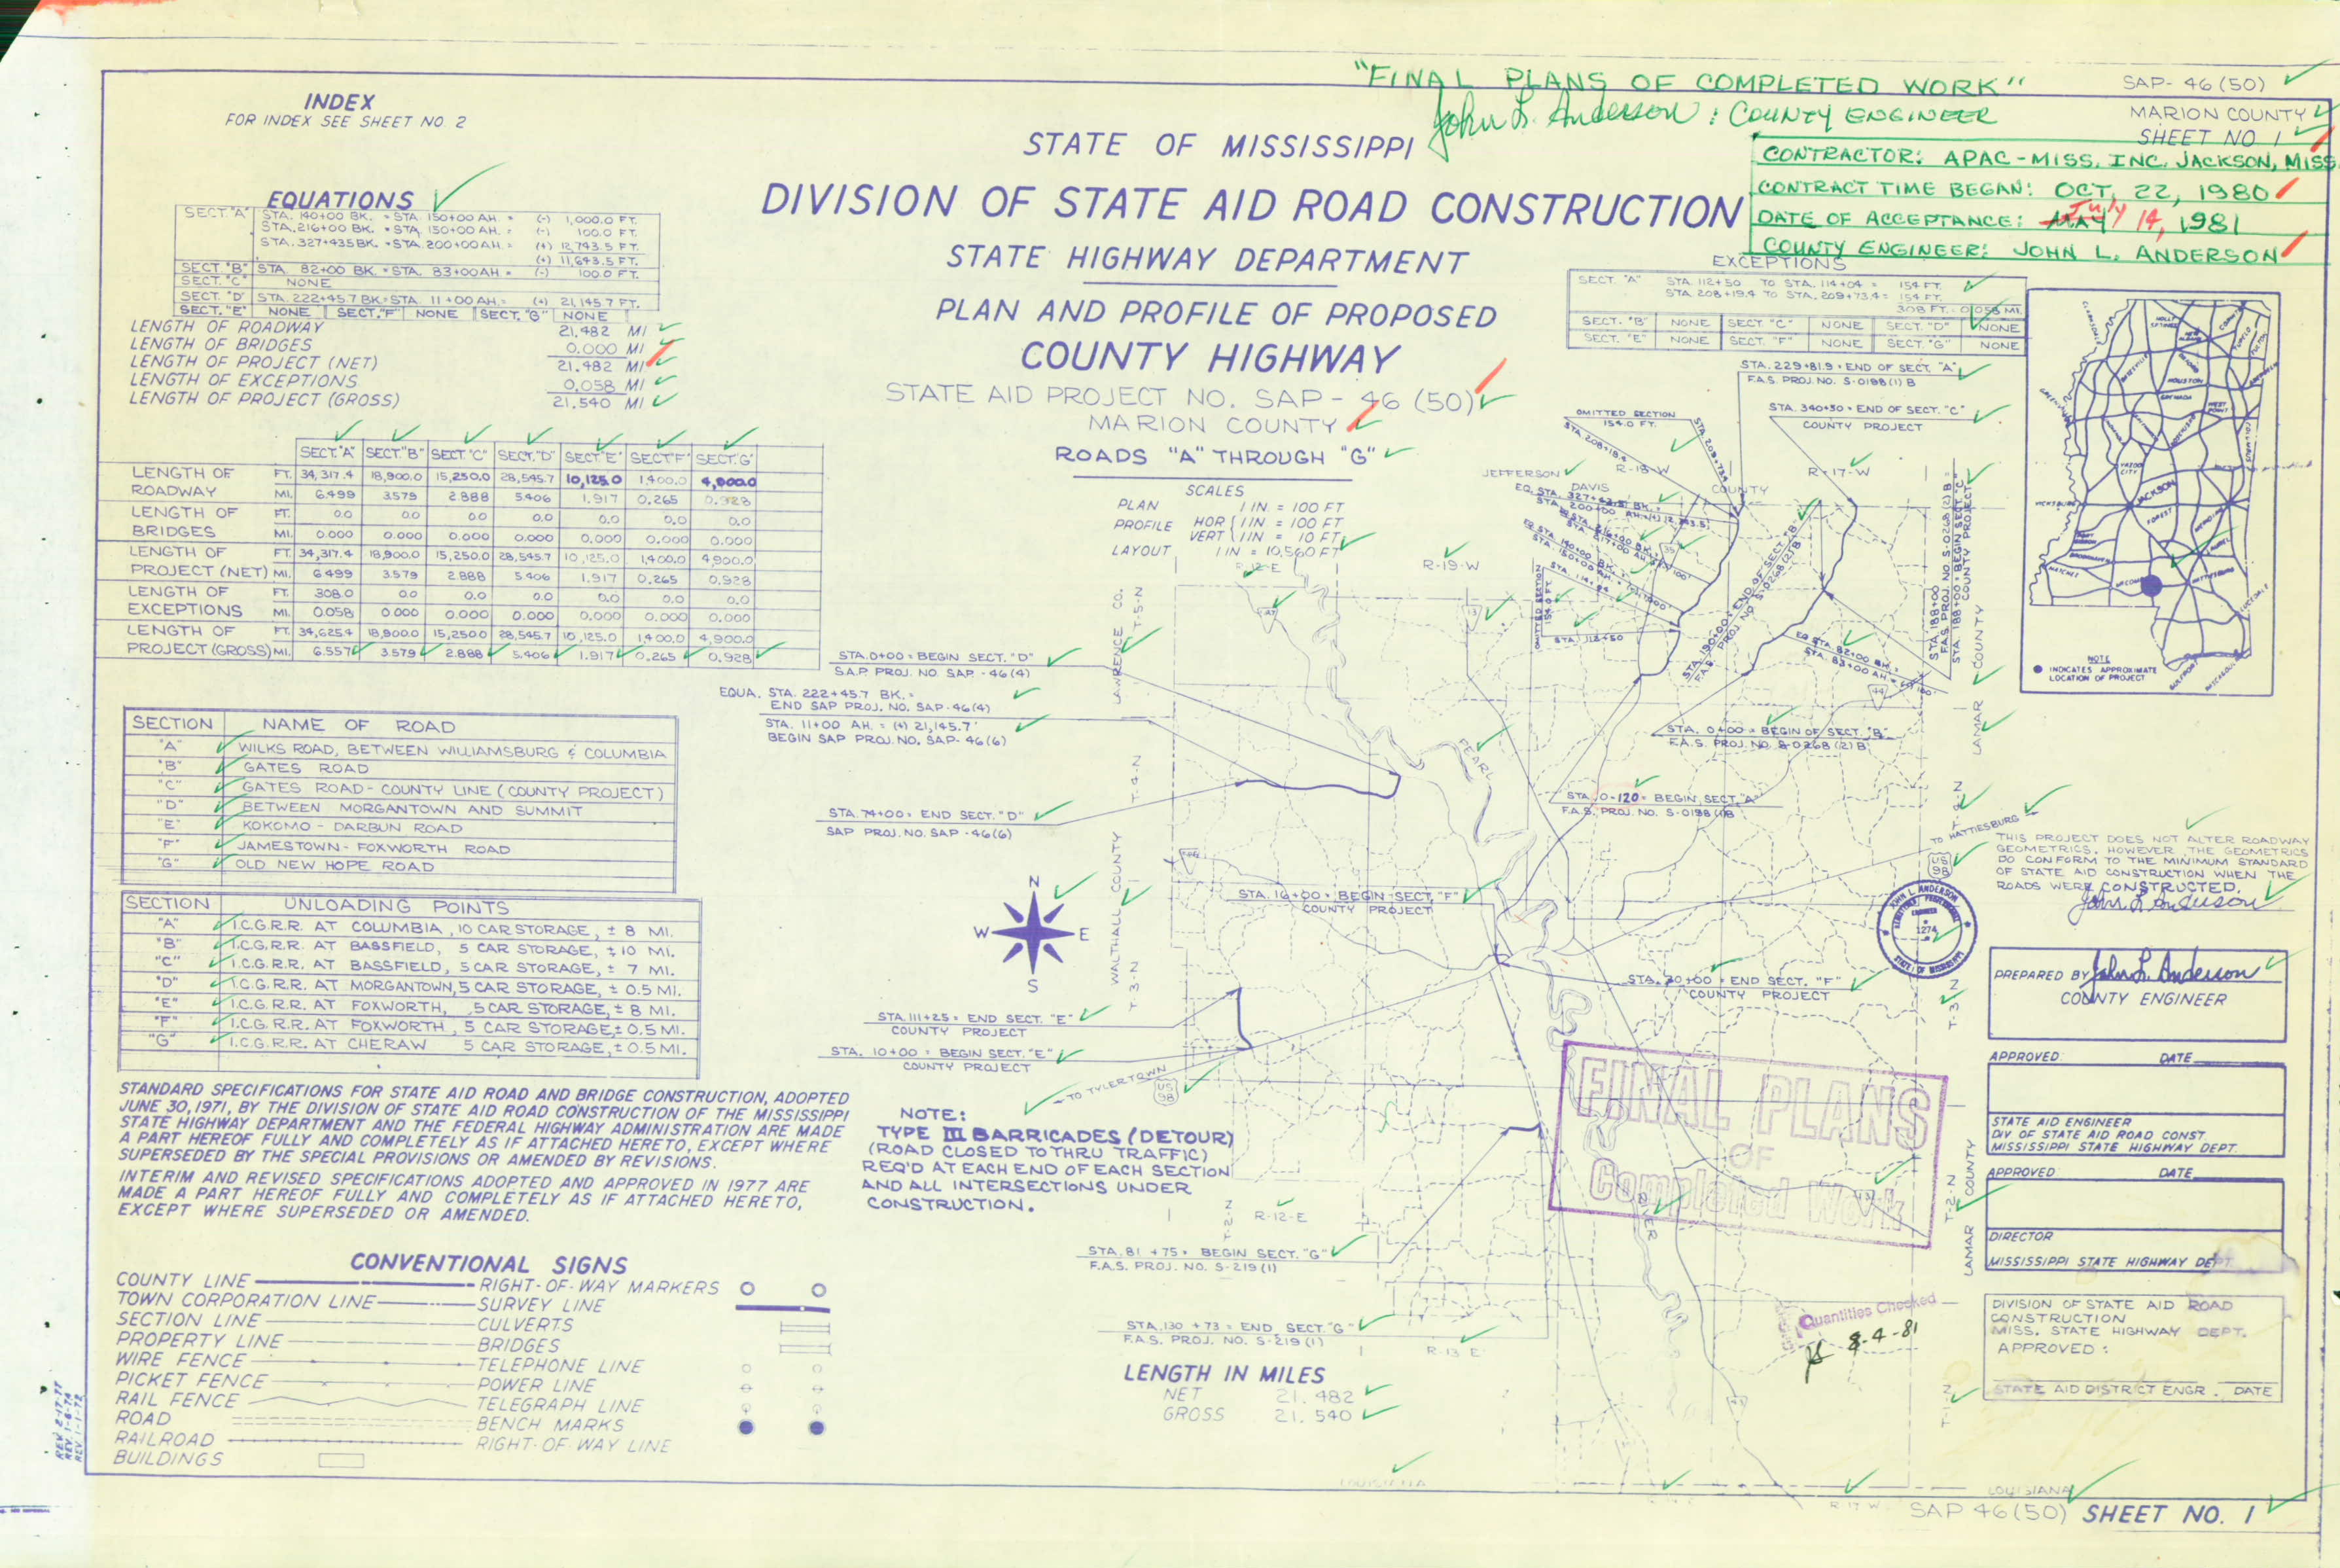 "FINAL PLANS OF COMPLETED WORK"
John L. Anderson : COUNTY ENGINEER
SAP- 46 (50)
MARION COUNTY
SHEET NO 1
CONTRACTOR: APAC-MISS. INC. JACKSON, MISS
CONTRACT TIME BEGAN: OCT, 22, 1980
DATE OF ACCEPTANCE: MAY July 14, 1981
COUNTY ENGINEER: JOHN L. ANDERSON
INDEX
FOR INDEX SEE SHEET NO. 2
STATE OF MISSISSIPPI
DIVISION OF STATE AID ROAD CONSTRUCTION
STATE HIGHWAY DEPARTMENT
PLAN AND PROFILE OF PROPOSED
COUNTY HIGHWAY
STATE AID PROJECT NO. SAP - 46 (50)
MARION COUNTY
ROADS "A" THROUGH "G"
SCALES
PLAN 1 IN. = 100 FT
PROFILE HOR 1 IN = 100 FT
VERT 1 IN = 10 FT
LAYOUT 1 IN = 10,560 FT
EQUATIONS
SECT. "A" STA. 140+00 BK. = STA. 150+00 AH. = (-) 1,000.0 FT.
STA. 216+00 BK. = STA. 150+00 AH. = (-) 100.0 FT.
STA. 327+43.5 BK. = STA. 200+00 AH. = (+) 12,743.5 FT.
(+) 11,643.5 FT.
SECT. "B" STA. 82+00 BK = STA. 83+00 AH = (-) 100.0 FT.
SECT. "C" NONE
SECT. "D" STA. 222+45.7 BK = STA. 11+00 AH. = (+) 21,145.7 FT.
SECT. "E" NONE SECT. "F" NONE SECT. "G" NONE
LENGTH OF ROADWAY 21.482 MI
LENGTH OF BRIDGES 0.000 MI
LENGTH OF PROJECT (NET) 21.482 MI
LENGTH OF EXCEPTIONS 0.058 MI
LENGTH OF PROJECT (GROSS) 21.540 MI
SECT. "A" SECT. "B" SECT. "C" SECT. "D" SECT. "E" SECT. "F" SECT. "G"
LENGTH OF ROADWAY FT. 34,317.4 18,900.0 15,250.0 28,545.7 10,125.0 1,400.0 4,900.0
MI. 6.499 3.579 2.888 5.406 1.917 0.265 0.928
LENGTH OF BRIDGES FT. 0.0 0.0 0.0 0.0 0.0 0.0 0.0
MI. 0.000 0.000 0.000 0.000 0.000 0.000 0.000
LENGTH OF PROJECT (NET) FT. 34,317.4 18,900.0 15,250.0 28,545.7 10,125.0 1,400.0 4,900.0
MI. 6.499 3.579 2.888 5.406 1.917 0.265 0.928
LENGTH OF EXCEPTIONS FT. 308.0 0.0 0.0 0.0 0.0 0.0 0.0
MI. 0.058 0.000 0.000 0.000 0.000 0.000 0.000
LENGTH OF PROJECT (GROSS) FT. 34,625.4 18,900.0 15,250.0 28,545.7 10,125.0 1,400.0 4,900.0
MI. 6.557 3.579 2.888 5.406 1.917 0.265 0.928
SECTION NAME OF ROAD
"A" WILKS ROAD, BETWEEN WILLIAMSBURG & COLUMBIA
"B" GATES ROAD
"C" GATES ROAD - COUNTY LINE (COUNTY PROJECT)
"D" BETWEEN MORGANTOWN AND SUMMIT
"E" KOKOMO - DARBUN ROAD
"F" JAMESTOWN - FOXWORTH ROAD
"G" OLD NEW HOPE ROAD
SECTION UNLOADING POINTS
"A" I.C.G.R.R. AT COLUMBIA, 10 CAR STORAGE, ± 8 MI.
"B" I.C.G.R.R. AT BASSFIELD, 5 CAR STORAGE, ± 10 MI.
"C" I.C.G.R.R. AT BASSFIELD, 5 CAR STORAGE, ± 7 MI.
"D" I.C.G.R.R. AT MORGANTOWN, 5 CAR STORAGE, ± 0.5 MI.
"E" I.C.G.R.R. AT FOXWORTH, 5 CAR STORAGE, ± 8 MI.
"F" I.C.G.R.R. AT FOXWORTH, 5 CAR STORAGE, ± 0.5 MI.
"G" I.C.G.R.R. AT CHERAW 5 CAR STORAGE, ± 0.5 MI.
STANDARD SPECIFICATIONS FOR STATE AID ROAD AND BRIDGE CONSTRUCTION, ADOPTED
JUNE 30, 1971, BY THE DIVISION OF STATE AID ROAD CONSTRUCTION OF THE MISSISSIPPI
STATE HIGHWAY DEPARTMENT AND THE FEDERAL HIGHWAY ADMINISTRATION ARE MADE
A PART HEREOF FULLY AND COMPLETELY AS IF ATTACHED HERETO, EXCEPT WHERE
SUPERSEDED BY THE SPECIAL PROVISIONS OR AMENDED BY REVISIONS.
INTERIM AND REVISED SPECIFICATIONS ADOPTED AND APPROVED IN 1977 ARE
MADE A PART HEREOF FULLY AND COMPLETELY AS IF ATTACHED HERETO,
EXCEPT WHERE SUPERSEDED OR AMENDED.
CONVENTIONAL SIGNS
COUNTY LINE RIGHT-OF-WAY MARKERS
TOWN CORPORATION LINE SURVEY LINE
SECTION LINE CULVERTS
PROPERTY LINE BRIDGES
WIRE FENCE TELEPHONE LINE
PICKET FENCE POWER LINE
RAIL FENCE TELEGRAPH LINE
ROAD BENCH MARKS
RAILROAD RIGHT-OF-WAY LINE
BUILDINGS
REV. 2-17-77
REV. 1-6-74
REV. 1-1-72
EXCEPTIONS
SECT. "A" STA. 112+50 TO STA. 114+04 = 154 FT.
STA. 208+19.4 TO STA. 209+73.4 = 154 FT.
308 FT. = 0.058 MI.
SECT. "B" NONE SECT. "C" NONE SECT. "D" NONE
SECT. "E" NONE SECT. "F" NONE SECT. "G" NONE
STA. 229+81.9 = END OF SECT. "A"
F.A.S. PROJ. NO. S-0198(1) B
STA. 340+50 = END OF SECT. "C"
COUNTY PROJECT
OMITTED SECTION
154.0 FT.
STA. 208+19.4
STA. 209+73.4
JEFFERSON DAVIS COUNTY
R-18-W
R-17-W
EQ. STA. 327+43.5 BK. =
200+00 AH. (+) 12,743.5
EQ. STA. 140+00 BK. =
STA. 150+00 AH.
STA. 114+04
OMITTED SECTION
154.0 FT
STA. 112+50
STA. 190+00 = END OF SECT. "B"
F.A.S. PROJ. NO. S-0268(2) B
STA. 188+00
F.A.S. PROJ. NO. S-0268(2) B
STA. 188+00 = BEGIN SECT. "C"
COUNTY PROJECT
EQ. STA. 82+00 BK. =
STA. 83+00 AH = (-) 100'
R-12-E
R-19-W
LAWRENCE CO.
T-5-N
STA. 0+00 = BEGIN SECT. "D"
SAP. PROJ. NO. SAP. - 46(4)
EQUA. STA. 222+45.7 BK. =
END SAP PROJ. NO. SAP-46(4)
STA. 11+00 AH. = (+) 21,145.7'
BEGIN SAP PROJ. NO. SAP- 46(6)
STA. 74+00 = END SECT. "D"
SAP PROJ. NO. SAP -46(6)
STA. 0+00 = BEGIN OF SECT. "B"
F.A.S. PROJ. NO. S-0268(2) B
STA. 0-120 = BEGIN SECT. "A"
F.A.S. PROJ. NO. S-0198(1)B
PEARL
T-4-N
WALTHALL COUNTY
T-3-N
LAMAR COUNTY
TO HATTIESBURG
US 98
STA. 16+00 = BEGIN SECT. "F"
COUNTY PROJECT
STA. 30+00 = END SECT. "F"
COUNTY PROJECT
N
W E
S
STA. 111+25 = END SECT. "E"
COUNTY PROJECT
STA. 10+00 = BEGIN SECT. "E"
COUNTY PROJECT
TO TYLERTOWN
US 98
NOTE:
TYPE III BARRICADES (DETOUR)
(ROAD CLOSED TO THRU TRAFFIC)
REQ'D AT EACH END OF EACH SECTION
AND ALL INTERSECTIONS UNDER
CONSTRUCTION.
T-2-N
R-12-E
STA. 81 +75 = BEGIN SECT. "G"
F.A.S. PROJ. NO. S-219(1)
STA. 130 +73 = END SECT. "G"
F.A.S. PROJ. NO. S-219(1)
R-13 E
RIVER
LENGTH IN MILES
NET 21.482
GROSS 21.540
FINAL PLANS
OF
Completed Work
Quantities Checked
8-4-81
NOTE
INDICATES APPROXIMATE
LOCATION OF PROJECT
JACKSON
HOUSTON
GRENADA
THIS PROJECT DOES NOT ALTER ROADWAY
GEOMETRICS. HOWEVER THE GEOMETRICS
DO CONFORM TO THE MINIMUM STANDARD
OF STATE AID CONSTRUCTION WHEN THE
ROADS WERE CONSTRUCTED.
John L Anderson
JOHN L. ANDERSON
REGISTERED PROFESSIONAL
ENGINEER
1274
STATE OF MISSISSIPPI
PREPARED BY John L. Anderson
COUNTY ENGINEER
APPROVED: DATE
STATE AID ENGINEER
DIV OF STATE AID ROAD CONST.
MISSISSIPPI STATE HIGHWAY DEPT.
APPROVED: DATE
DIRECTOR
MISSISSIPPI STATE HIGHWAY DEPT.
DIVISION OF STATE AID ROAD
CONSTRUCTION
MISS. STATE HIGHWAY DEPT.
APPROVED:
STATE AID DISTRICT ENGR. DATE
T-3-N
T-2-N
LAMAR COUNTY
T-1-N
LOUISIANA
R 17 W
LOUISIANA
SAP 46(50) SHEET NO. 1